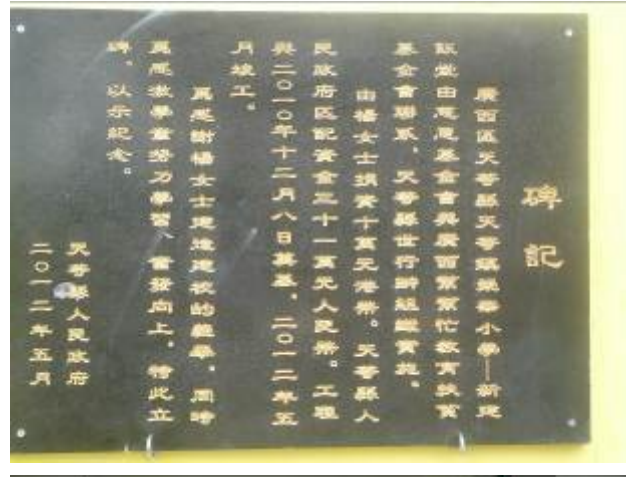 碑記
廣西區天等縣天等鎮華小學——新建
飯堂由恩基金會與廣西幫幫忙教育扶貧
基金會聯系、天等縣世行辦組織實施。
由楊女士捐資十萬元港幣。天等縣人
民政府匹配資金三十一萬元人民幣。工程
與二〇一〇年十二月八日奠基、二〇一二年五
月竣工。
爲感謝楊女士建校的義舉。同時
爲感激學童努力學習、奮發向上。特此立
碑、以示紀念。
天等縣人民政府
二〇一二年五月